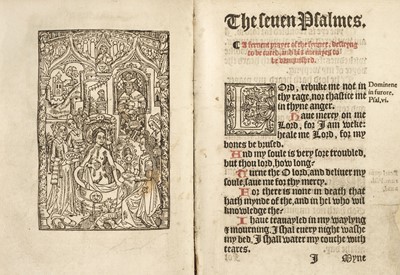 The seuen Psalmes.
A feruent prayer of the synner, desiryng
to be cured, and his enemyes to
be vanquished.
LOrd, rebuke me not in
thy rage, nor chastice me
in thyne anger.
Haue mercy on me
Lord, for I am weke:
heale me Lord, for my
bones be brused.
And my soule is very sore troubled,
but thou lord, how long?
Turne the O Lord, and deliuer my
soule, saue me for thy mercy.
For there is none in death that
hath mynde of the, and in hel who wil
knowledge the?
I haue trauayled in my waylyng
& mourning, I shal euery night washe
my bed, I shall water my couche with
teares.
J Myne
Domine ne
in furore.
Psal. vi.